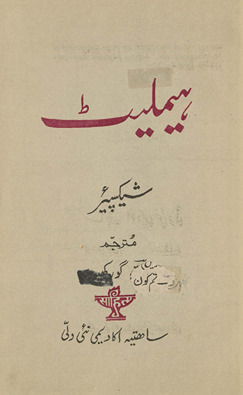 ہیملیٹ
شیکسپیئر
مترجم
ساہتیہ اکادیمی نئی دلّی